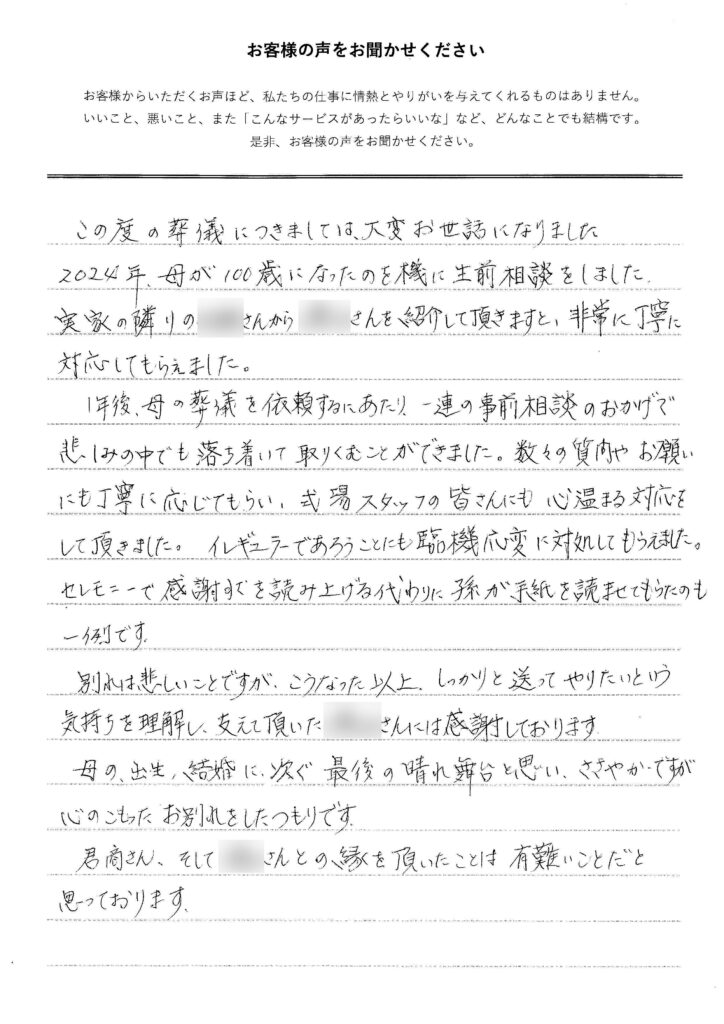 お客様の声をお聞かせください
お客様からいただくお声ほど、私たちの仕事に情熱とやりがいを与えてくれるものはありません。
いいこと、悪いこと、また「こんなサービスがあったらいいな」など、どんなことでも結構です。
是非、お客様の声をお聞かせください。
この度の葬儀につきましては、大変お世話になりました
2024年、母が100歳になったのを機に生前相談をしました.
実家の隣りの さんから さんを紹介して頂きますと、非常に丁寧に
対応してもらえました。
1年後、母の葬儀を依頼するにあたり、一連の事前相談のおかげで
悲しみの中でも落ち着いて取りくむことができました。数々の質問やお願い
にも丁寧に応じてもらい、式場スタッフの皆さんにも心温まる対応を
して頂きました。イレギュラーであろうことにも臨機応変に対処してもらえました。
セレモニーで感謝 を読み上げる代わりに孫が手紙を読ませてもらったのも
一例です.
別れは悲しいことですが、こうなった以上、しっかりと送ってやりたいという
気持ちを理解し、支えて頂いた さんには感謝しております.
母の、出生、結婚に、次ぐ最後の晴れ舞台と思い、ささやかですが
心のこもったお別れをしたつもりです.
君商さん、そして さんとの縁を頂いたことは有難いことだと
思っております.